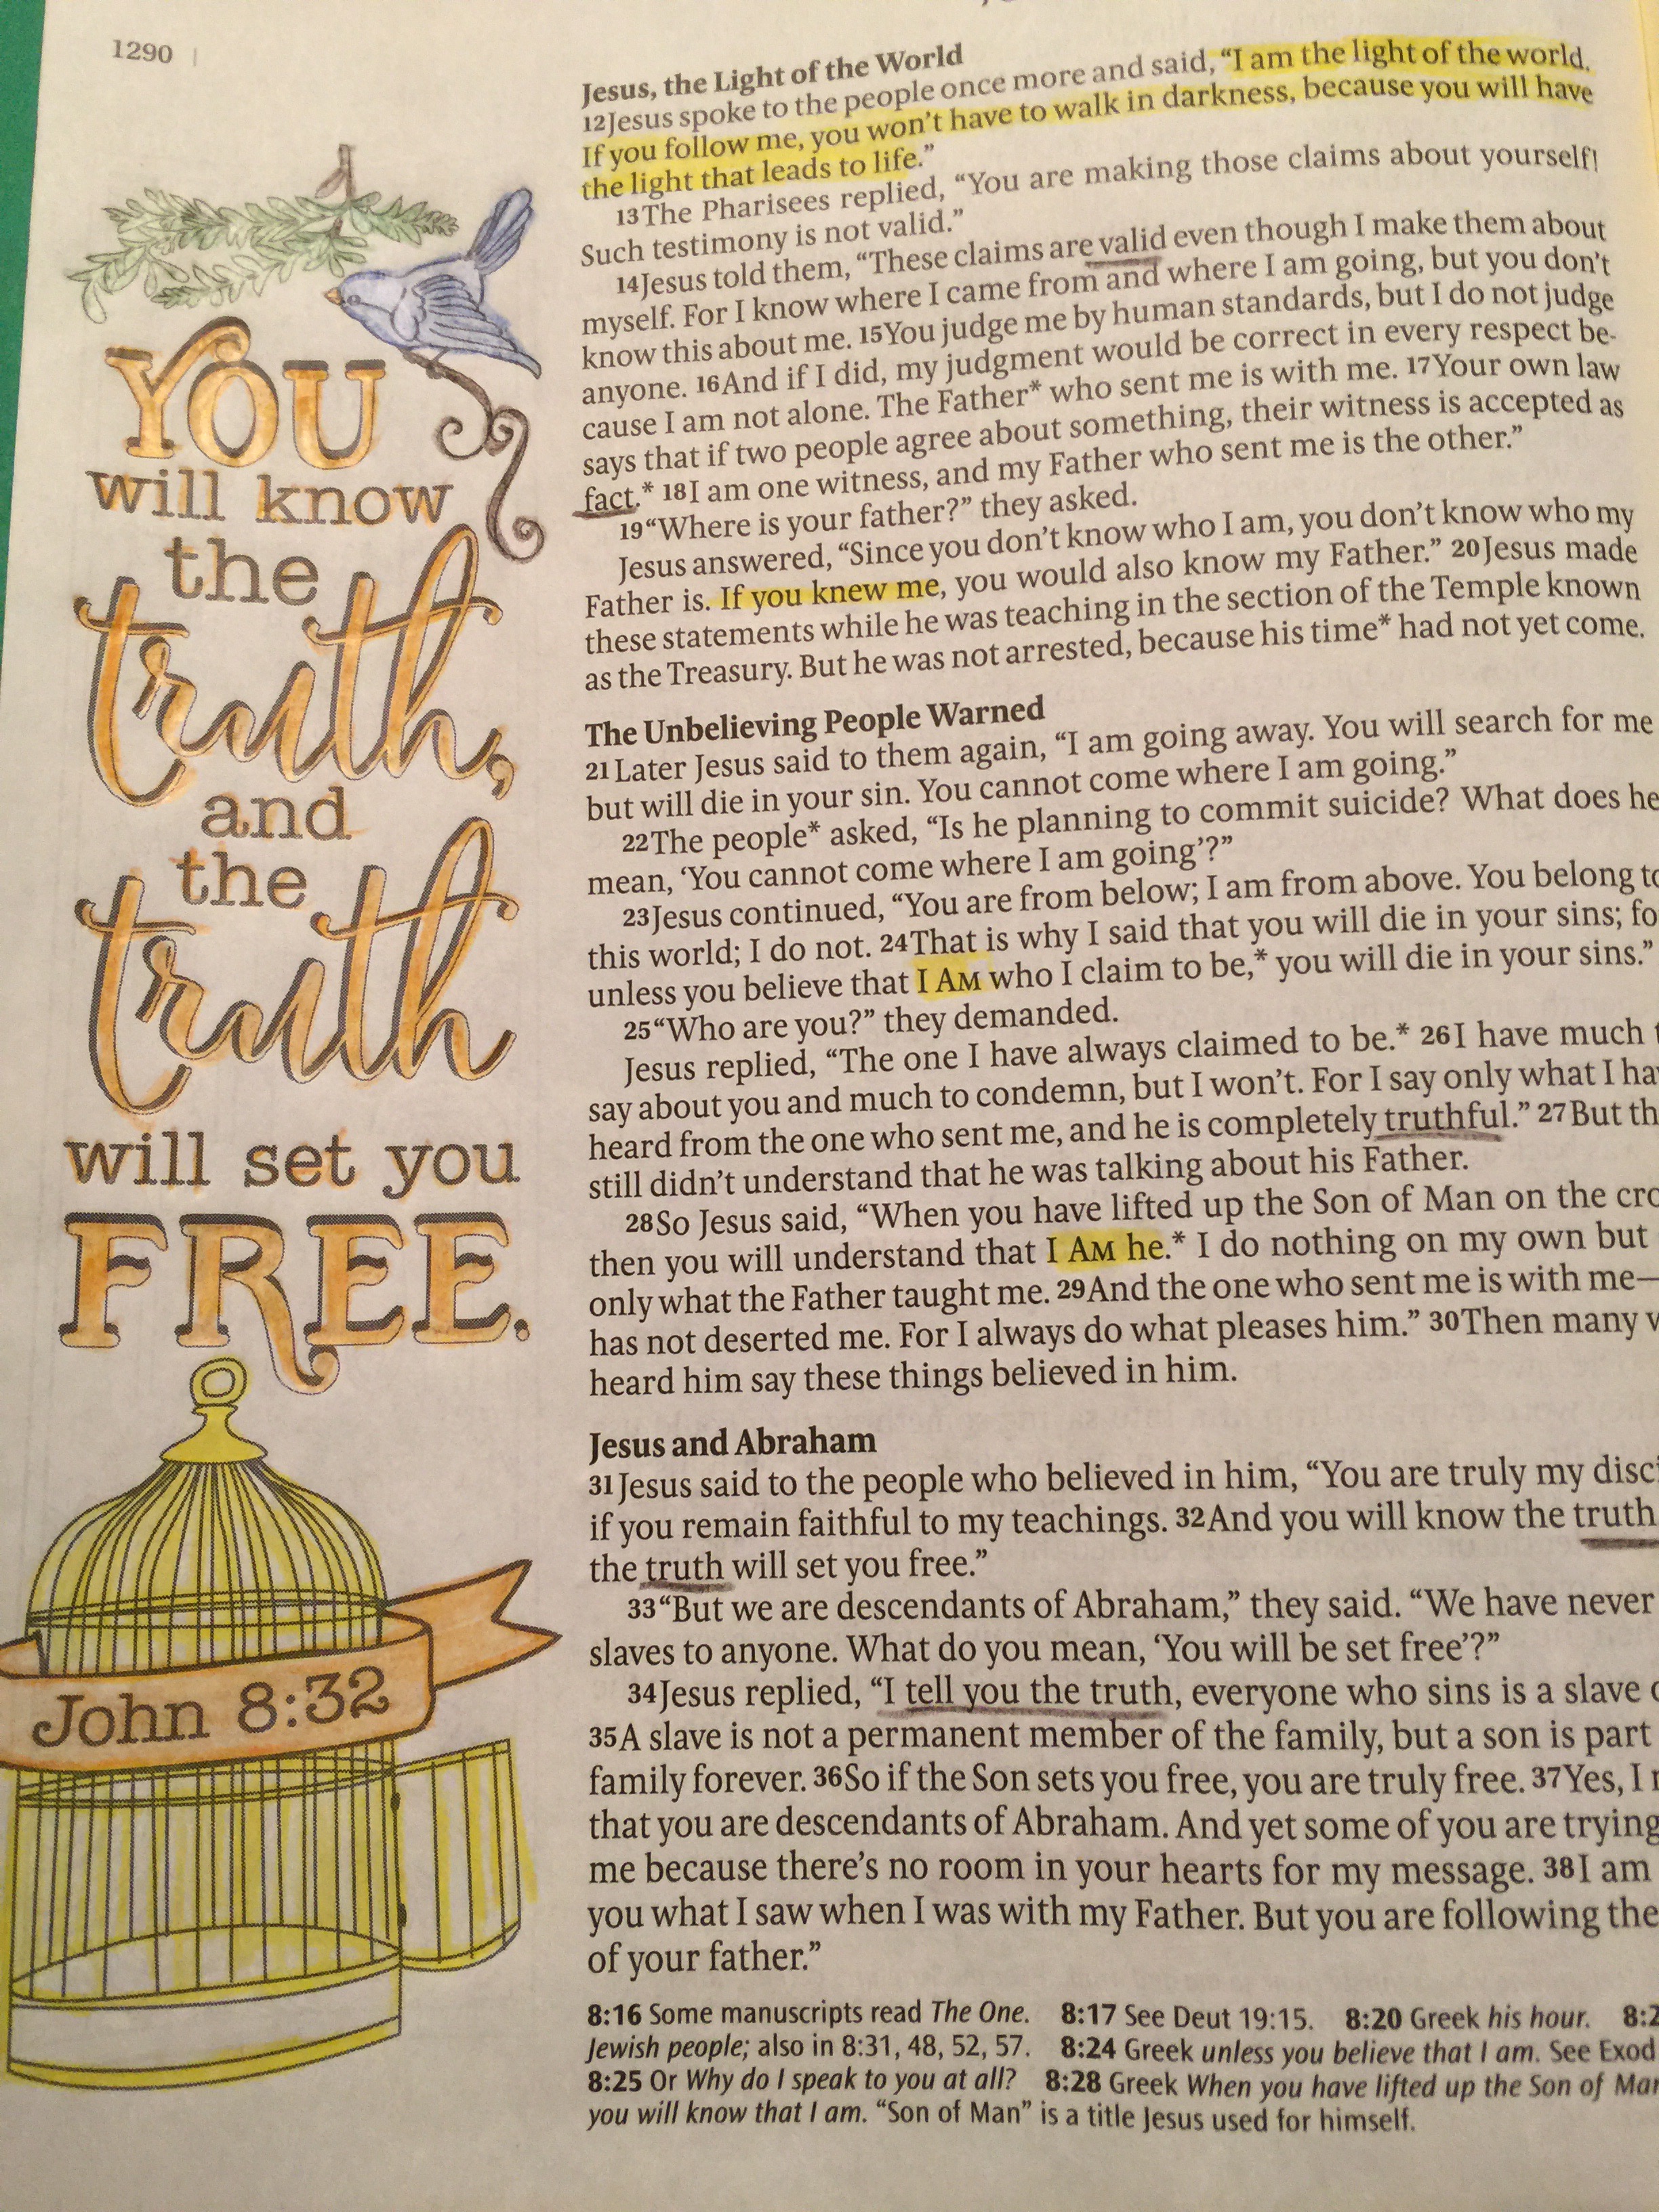 1290 |
YOU
will know
the
truth,
and
the
truth
will set you
FREE.
John 8:32
Jesus, the Light of the World
12Jesus spoke to the people once more and said, “I am the light of the world.
If you follow me, you won’t have to walk in darkness, because you will have
the light that leads to life.”
13The Pharisees replied, “You are making those claims about yourself!
Such testimony is not valid.”
14Jesus told them, “These claims are valid even though I make them about
myself. For I know where I came from and where I am going, but you don’t
know this about me. 15You judge me by human standards, but I do not judge
anyone. 16And if I did, my judgment would be correct in every respect be-
cause I am not alone. The Father* who sent me is with me. 17Your own law
says that if two people agree about something, their witness is accepted as
fact.* 18I am one witness, and my Father who sent me is the other.”
19“Where is your father?” they asked.
Jesus answered, “Since you don’t know who I am, you don’t know who my
Father is. If you knew me, you would also know my Father.” 20Jesus made
these statements while he was teaching in the section of the Temple known
as the Treasury. But he was not arrested, because his time* had not yet come.
The Unbelieving People Warned
21Later Jesus said to them again, “I am going away. You will search for me
but will die in your sin. You cannot come where I am going.”
22The people* asked, “Is he planning to commit suicide? What does he
mean, ‘You cannot come where I am going’?”
23Jesus continued, “You are from below; I am from above. You belong to
this world; I do not. 24That is why I said that you will die in your sins; fo
unless you believe that I AM who I claim to be,* you will die in your sins.”
25“Who are you?” they demanded.
Jesus replied, “The one I have always claimed to be.* 26I have much t
say about you and much to condemn, but I won’t. For I say only what I ha
heard from the one who sent me, and he is completely truthful.” 27But th
still didn’t understand that he was talking about his Father.
28So Jesus said, “When you have lifted up the Son of Man on the cro
then you will understand that I AM he.* I do nothing on my own but
only what the Father taught me. 29And the one who sent me is with me—
has not deserted me. For I always do what pleases him.” 30Then many w
heard him say these things believed in him.
Jesus and Abraham
31Jesus said to the people who believed in him, “You are truly my disci
if you remain faithful to my teachings. 32And you will know the truth
the truth will set you free.”
33“But we are descendants of Abraham,” they said. “We have never
slaves to anyone. What do you mean, ‘You will be set free’?”
34Jesus replied, “I tell you the truth, everyone who sins is a slave o
35A slave is not a permanent member of the family, but a son is part
family forever. 36So if the Son sets you free, you are truly free. 37Yes, I
that you are descendants of Abraham. And yet some of you are trying
me because there’s no room in your hearts for my message. 38I am
you what I saw when I was with my Father. But you are following the
of your father.”
8:16 Some manuscripts read The One. 8:17 See Deut 19:15. 8:20 Greek his hour. 8:2
Jewish people; also in 8:31, 48, 52, 57. 8:24 Greek unless you believe that I am. See Exod
8:25 Or Why do I speak to you at all? 8:28 Greek When you have lifted up the Son of Man
you will know that I am. “Son of Man” is a title Jesus used for himself.